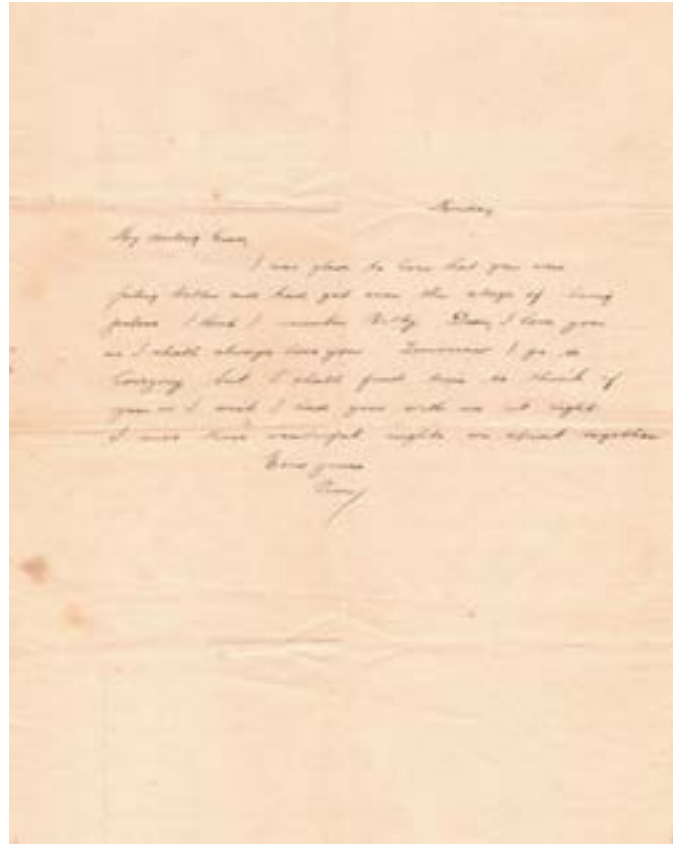 Monday
My darling
I was glad to have that you were
feeling better and had got over the stage of being
I think I Dear, I love you
as I shall always love you. Tomorrow I go to
but I shall find time to think of
you as I wish I had you with me at night
I miss those wonderful nights we spent together
Ever yours